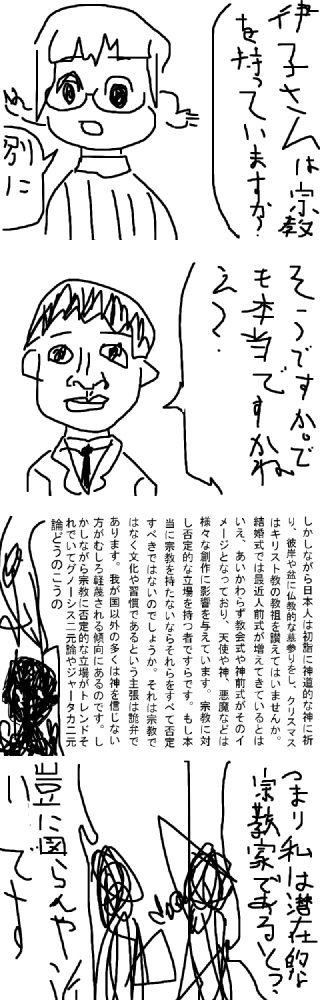 伊子さんは宗教
を持っていますか？
別に
そうですか。で
も本当ですかね
え？
しかしながら日本人は初詣に神道的な神に祈
り、彼岸や盆に仏教的な墓参りをし、クリスマス
はキリスト教の教祖を讃えてはいませんか。
結婚式では最近人前式が増えてきているとは
いえ、あいかわらず教会式や神前式がそのイ
メージとなっており、天使や神、悪魔などは
様々な創作に影響を与えています。宗教に対
し否定的な立場を持つ者ですらです。もし本
当に宗教を持たないならそれらをすべて否定
すべきではないのでしょうか。それは宗教で
はなく文化や習慣であるという主張は詭弁で
あります。我が国以外の多くは神を信じない
方がむしろ軽蔑される傾向にあるのです。し
かしながら宗教に否定的な立場がトレンドそ
れでいてグノーシス二元論やジャータカニ元
論どうのこうの
つまり私は潜在的な
宗教家であると？
豈に図らんや
いです